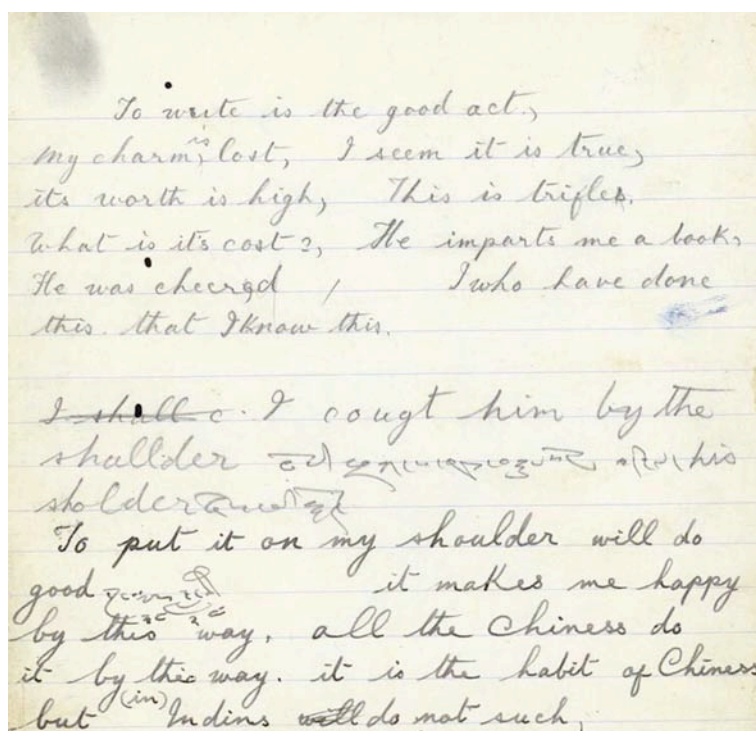 To write is the good act,
My charm is lost, I seem it is true,
its worth is high, This is trifles.
What is it's cost?, He imparts me a book,
He was cheered / I who have done
this. that I know this.
I shall c. I cougt him by the
shallder his
sholder
To put it on my shoulder will do
good it makes me happy
by this way. all the Chiness do
it by the way. it is the habit of Chiness
but (in) Indins will do not such,